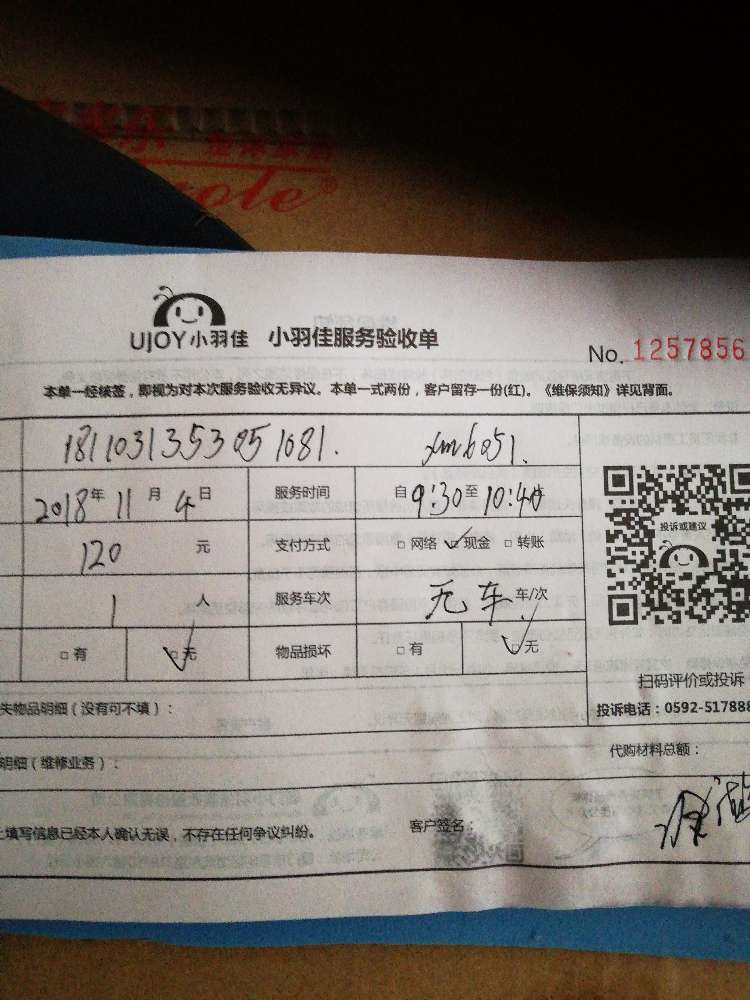 UJOY小羽佳 小羽佳服务验收单
No. 1257856
本单一经核签，即视为对本次服务验收无异议。本单一式两份，客户留存一份(红)。《维保须知》详见背面。
1811031353051081. xm6051.
2018年 11 月 4 日 服务时间 自 9:30 至 10:40
120 元 支付方式 □ 网络 ☑ 现金 □ 转账
1 人 服务车次 无车 车/次
□ 有 ☑ 无 物品损坏 □ 有 ☑ 无
投诉或建议
扫码评价或投诉
失物品明细（没有可不填）：
投诉电话：0592-517888
明细（维修业务）：
代购材料总额：
上填写信息已经本人确认无误，不存在任何争议纠纷。
客户签名：